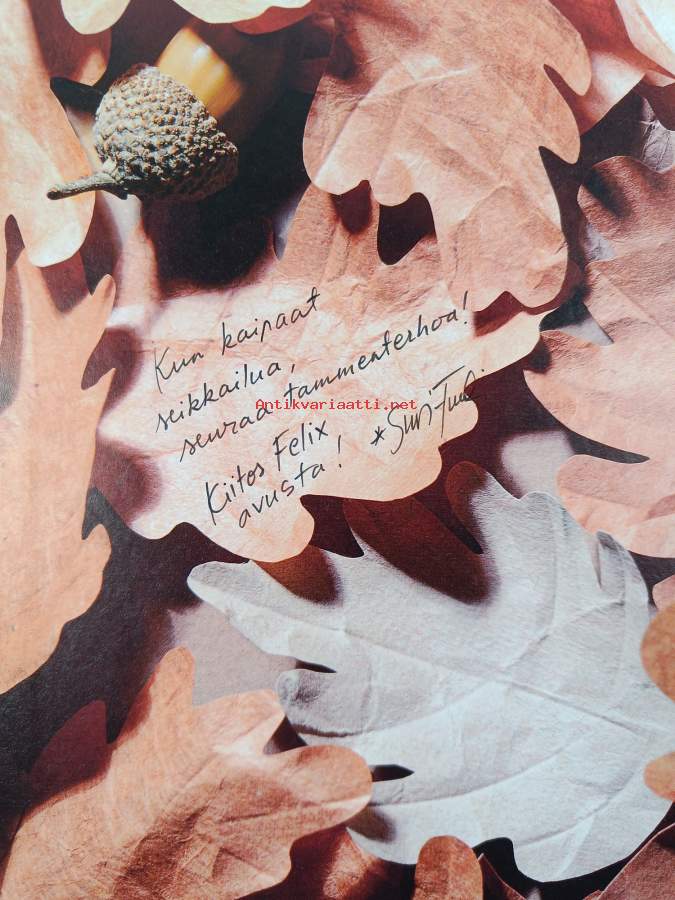 Kun kaipaat
seikkailua,
seuraa tammenterhoa!
Antikvariaatti.net
Kiitos Felix
avusta!